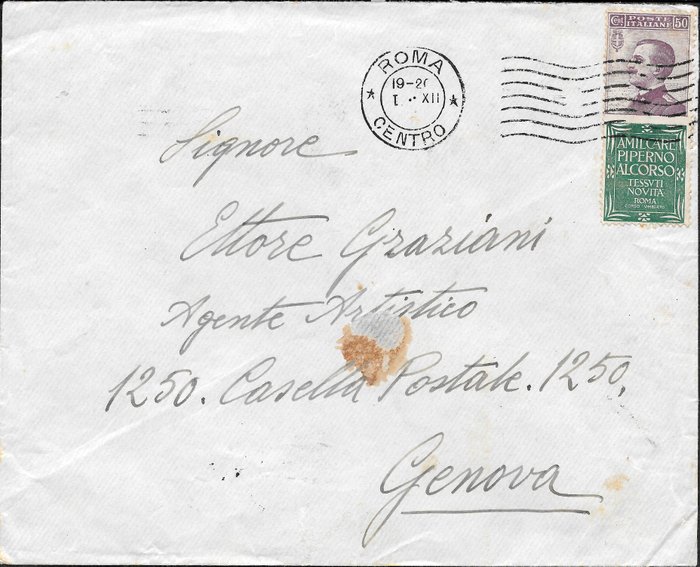 POSTE
ITALIANE
50
ROMA
19-20
XII
CENTRO
AMILCARE
PIPERNO
AL CORSO
TESSVTI
NOVITÀ
ROMA
CORSO UMBERTO
Signore
Ettore Graziani
Agente Artistico
1250. Casella Postale. 1250,
Genova